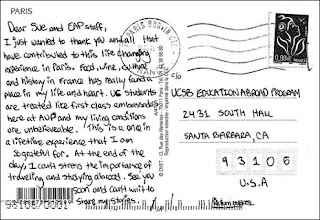 PARIS
Dear Sue and EAP staff,
I just wanted to thank you and all that
have contributed to this life changing
experience in Paris. Food, wine, culture
and history in France has really found a
place in my life and heart. UC students
are treated like first class ambassadors
here at AVP and my living conditions
are unbelievable. "This is a one in
a lifetime experience that I am
so grateful for. At the end of the
day, I can't stress the importance of
traveling and studying abroad. See you
soon and can't wait to
share my stories.
PARIS
c/o
UCSB EDUCATION ABROAD PROGRAM
2431 SOUTH HALL
SANTA BARBARA, CA
93106
U.S.A